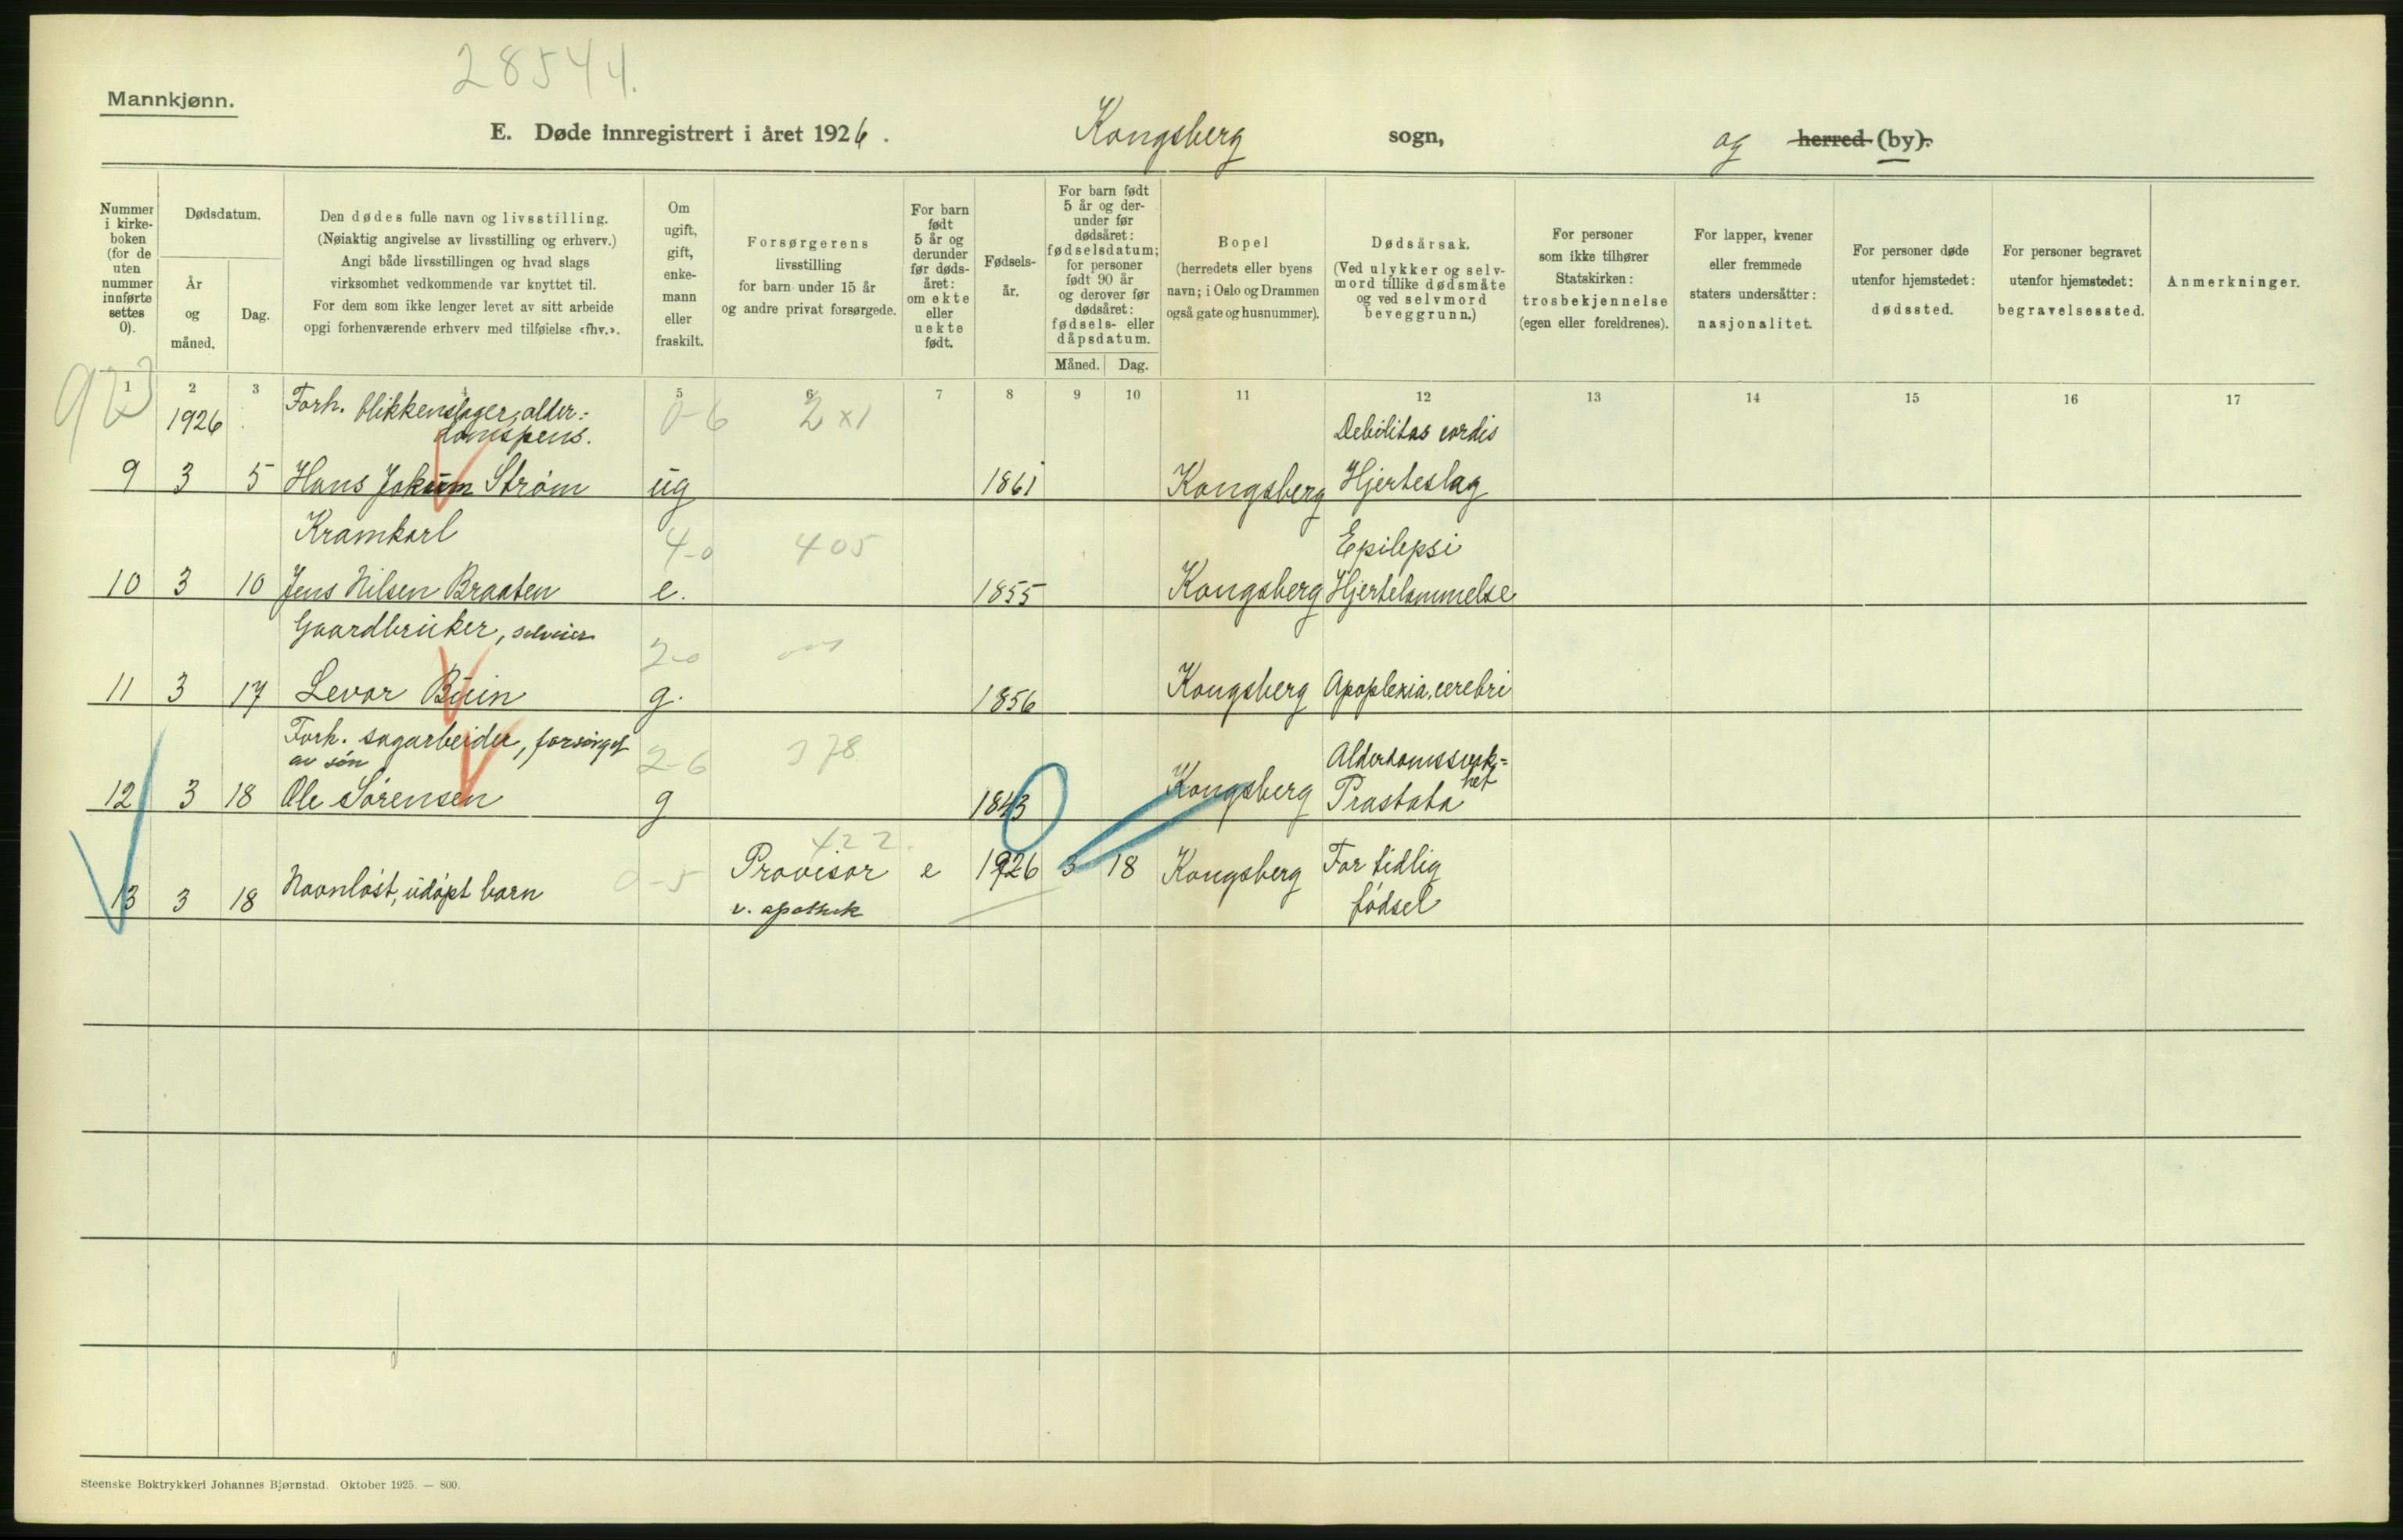 28544.
Mannkjønn.
E. Døde innregistrert i året 1926. Kongsberg sogn, og herred (by).
Nummer i kirkeboken (for de uten nummer innførte settes 0).
Dødsdatum.
År og måned.
Dag.
Den dødes fulle navn og livsstilling.
(Nøiaktig angivelse av livsstilling og erhverv.)
Angi både livsstillingen og hvad slags
virksomhet vedkommende var knyttet til.
For dem som ikke lenger levet av sitt arbeide
opgi forhenværende erhverv med tilføielse «fhv.».
Om ugift, gift, enkemann eller fraskilt.
Forsørgerens
livsstilling
for barn under 15 år
og andre privat forsørgede.
For barn født 5 år og derunder før dødsåret: om ekte eller uekte født.
Fødselsår.
For barn født 5 år og derunder før dødsåret: fødselsdatum; for personer født 90 år og derover før dødsåret: fødsels- eller dåpsdatum.
Måned. Dag.
Bopel
(herredets eller byens
navn; i Oslo og Drammen
også gate og husnummer).
Dødsårsak.
(Ved ulykker og selvmord tillike dødsmåte
og ved selvmord
beveggrunn.)
For personer
som ikke tilhører
Statskirken:
trosbekjennelse
(egen eller foreldrenes).
For lapper, kvener
eller fremmede
staters undersåtter:
nasjonalitet.
For personer døde
utenfor hjemstedet:
dødssted.
For personer begravet
utenfor hjemstedet:
begravelsessted.
Anmerkninger.
1 2 3 4 5 6 7 8 9 10 11 12 13 14 15 16 17
1926 Forh. blikkenslager, alder= 0-6 2x1
domspens. Debilitas cordis
9 3 5 Hans Jokum Strøm ug 1861 Kongsberg Hjerteslag
Kramkarl 4-0 405 Epilepsi
10 3 10 Jens Nilsen Braaten e. 1855 Kongsberg Hjertelammelse
Gaardbruker, selveier 2-0
11 3 17 Levor Buin g. 1856 Kongsberg Apoplexia cerebri
Forh. sagarbeider, forsørget 2-6 378 Alderdomssvak=
av søn het
12 3 18 Ole Sørensen g 1843 Kongsberg Prastata
422.
13 3 18 Navnløst, udøpt barn 0-5 Provisor e 1926 3 18 Kongsberg For tidlig
v. apothek fødsel
Steenske Boktrykkeri Johannes Bjørnstad. Oktober 1925. — 800.